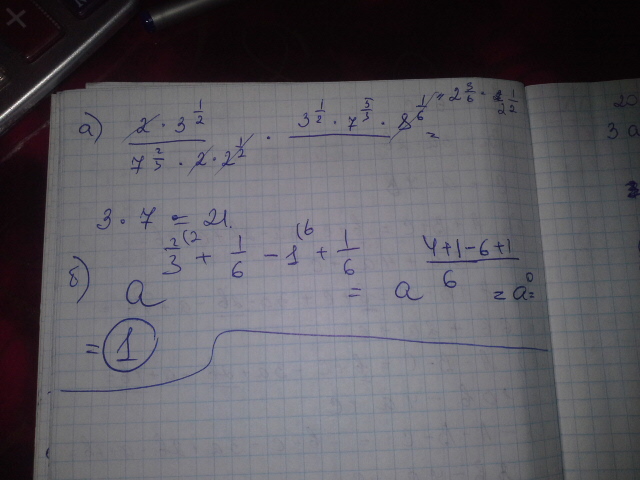 а) (2 · 3^(1/2)) / (7^(2/5) · 2 · 2^(1/2)) · (3^(1/2) · 7^(5/5) · 8^(1/6)) = 2^(3/6) = 2^(1/2)
=
3 · 7 = 21.
б) a^(2/3 (2 + 1/6 − 1 (6 + 1/6) = a^((4+1−6+1)/6) = a^0 =
= 1
3 a